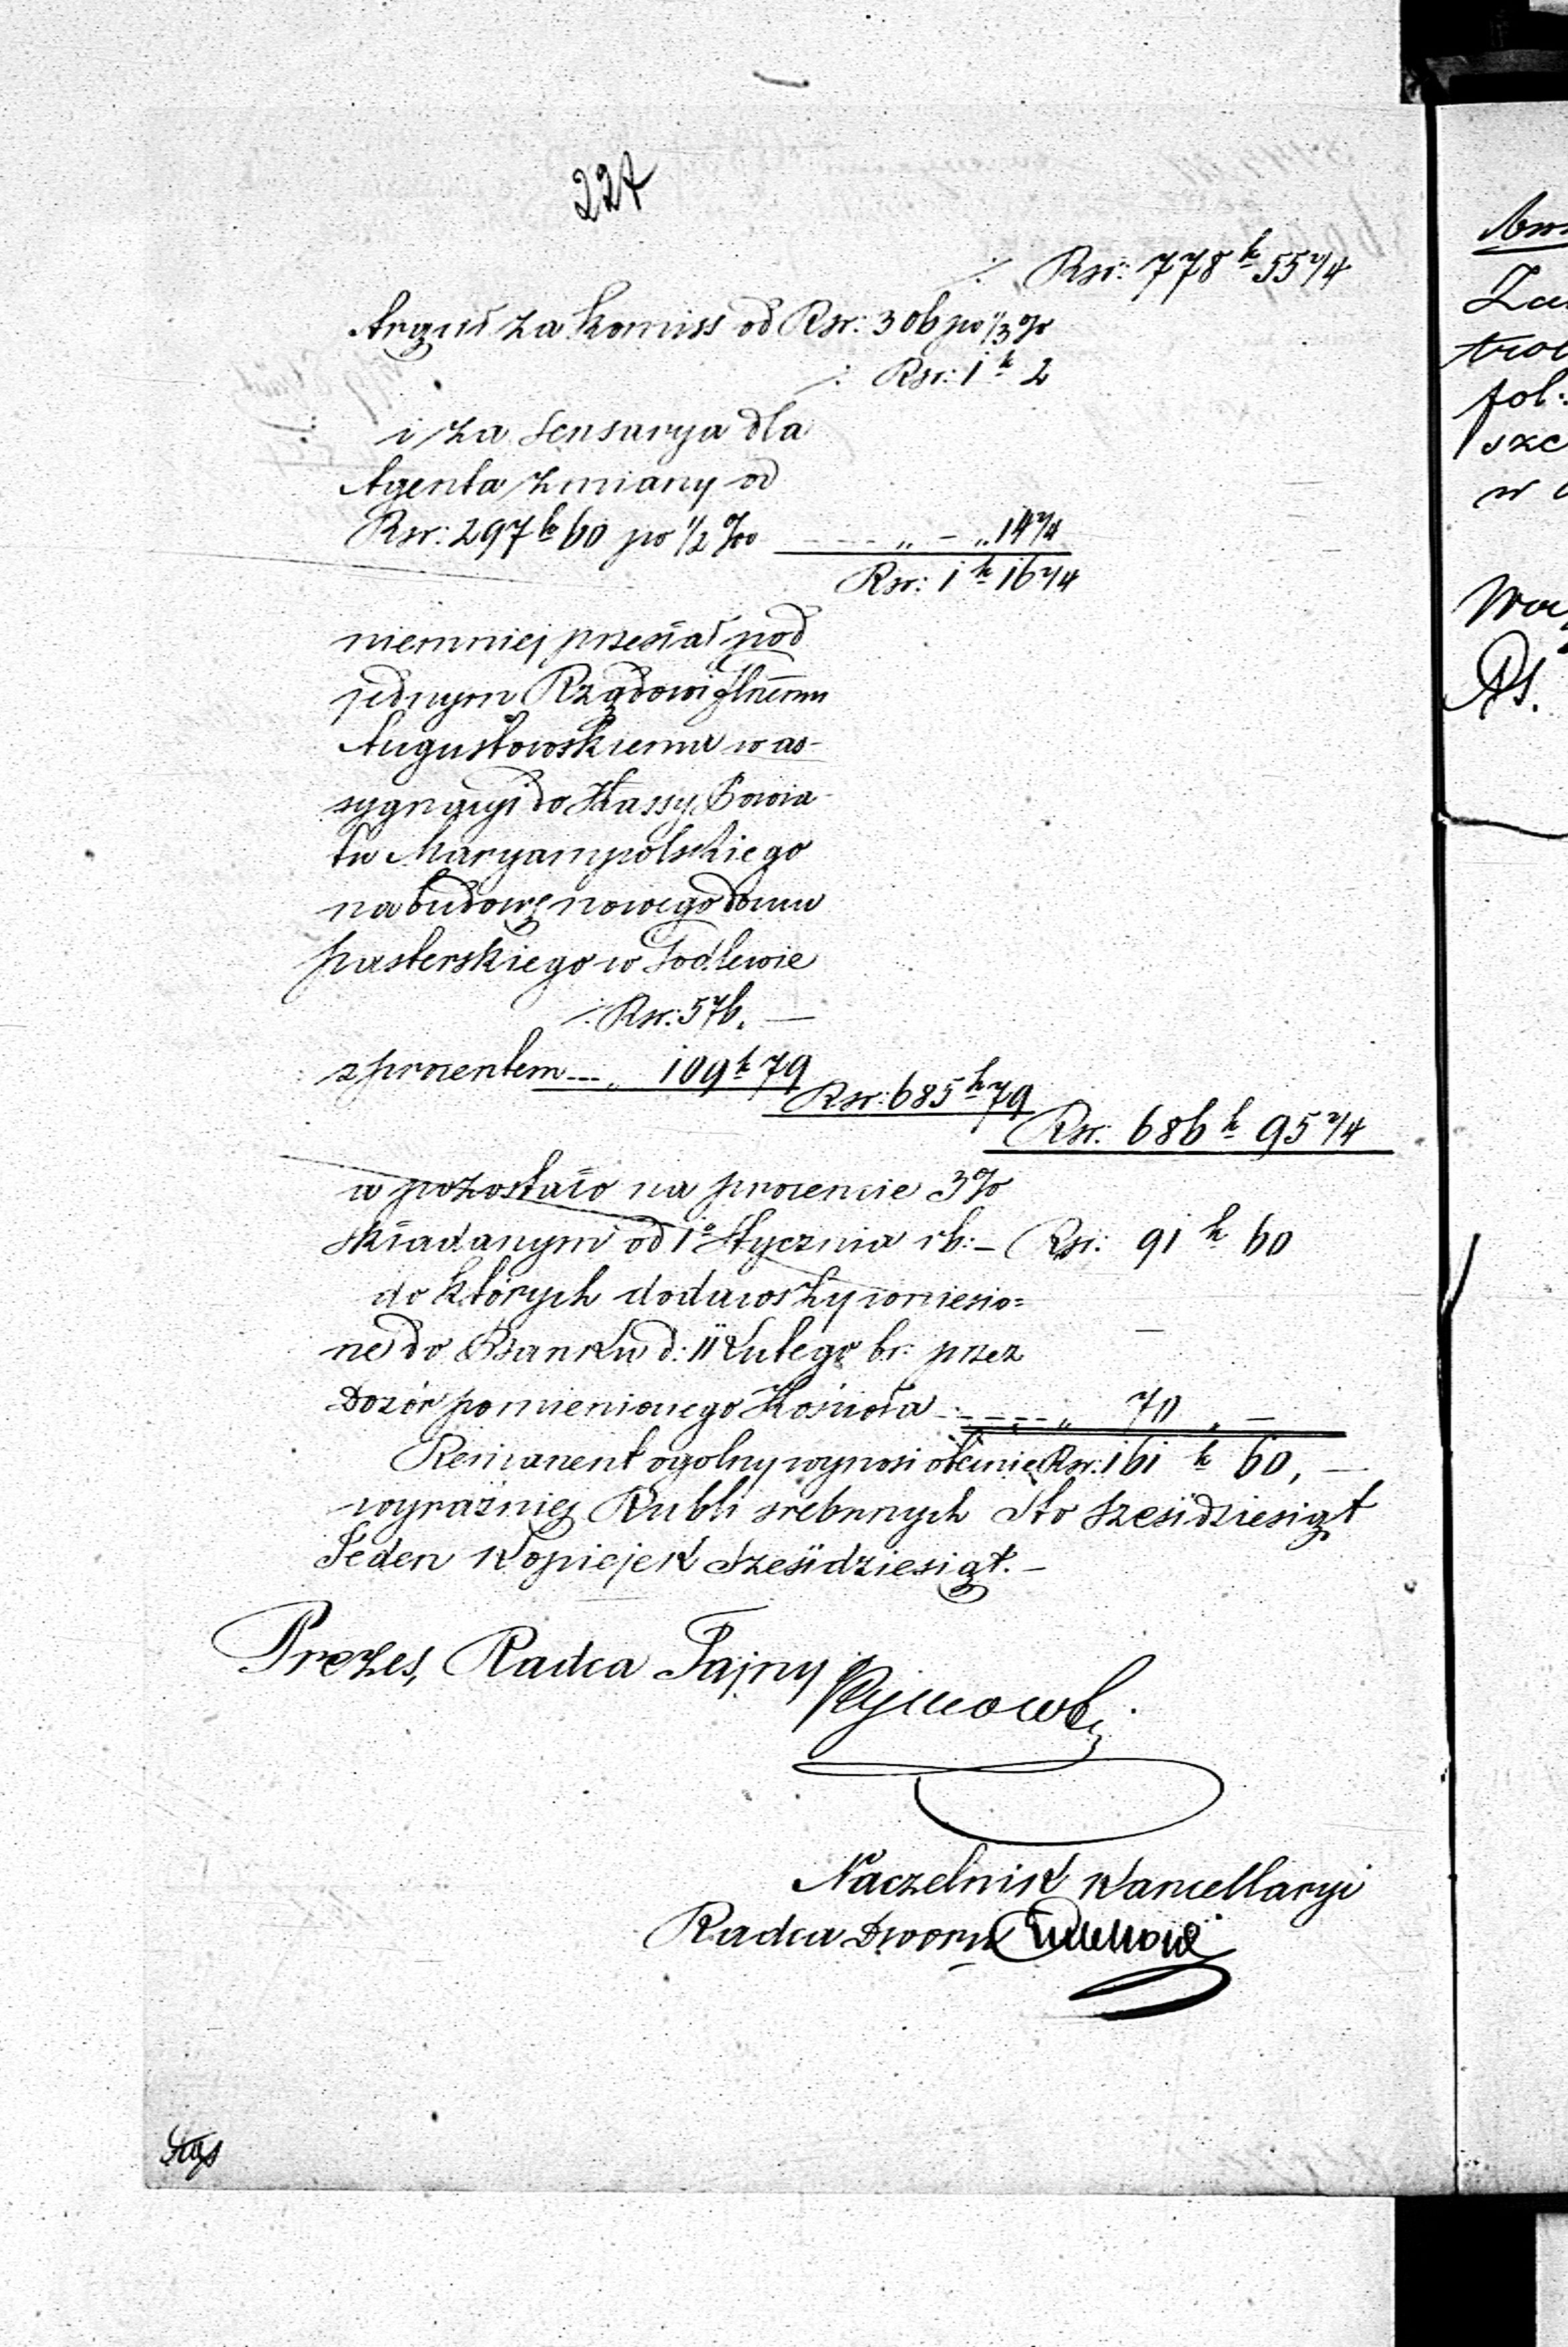 227
./. Rsr: 778 k 55 2/4
za Komiss od Rsr: 306 po 1/3 %
./. Rsr: 1 k 2
i za Sensarya dla
Agenta zmiany od
Rsr: 297 k 60 po 1/2 %00 - - - „ - „ 14 2/4
Rsr: 1 k 16 2/4
niemniej przesłał pod
jednym Rządowi
Augustowskiemu w as-
sygnacyi do Kassy Powia-
tu Maryampolskiego
na budowę nowego domu
pasterskiego w Godlewie
./. Rsr: 576. —
z procentem - - - „ 109 k 79
Rsr: 685 k 79
Rsr: 686 k 95 2/4
a pozostało na procencie 3%
składanym od 1o Stycznia rb: - Rsr: 91 k 60
do których dodawszy wniesio=
ne do Banku d: 11 Lutego br: przez —
Dozór pomienionego Kościoła - - - - - „ 70 „ —
Remanent ogolny wynosi obecnie Rsr: 161 k 60, —
wyraźniej Rubli srebrnych Sto sześćdziesiąt
Jeden Kopiejek sześćdziesiąt. —
Prezes, Radca Tajny
Naczelnik Kancellaryi
Radca Dworu
Zau
fol:
szc
w
Rs.